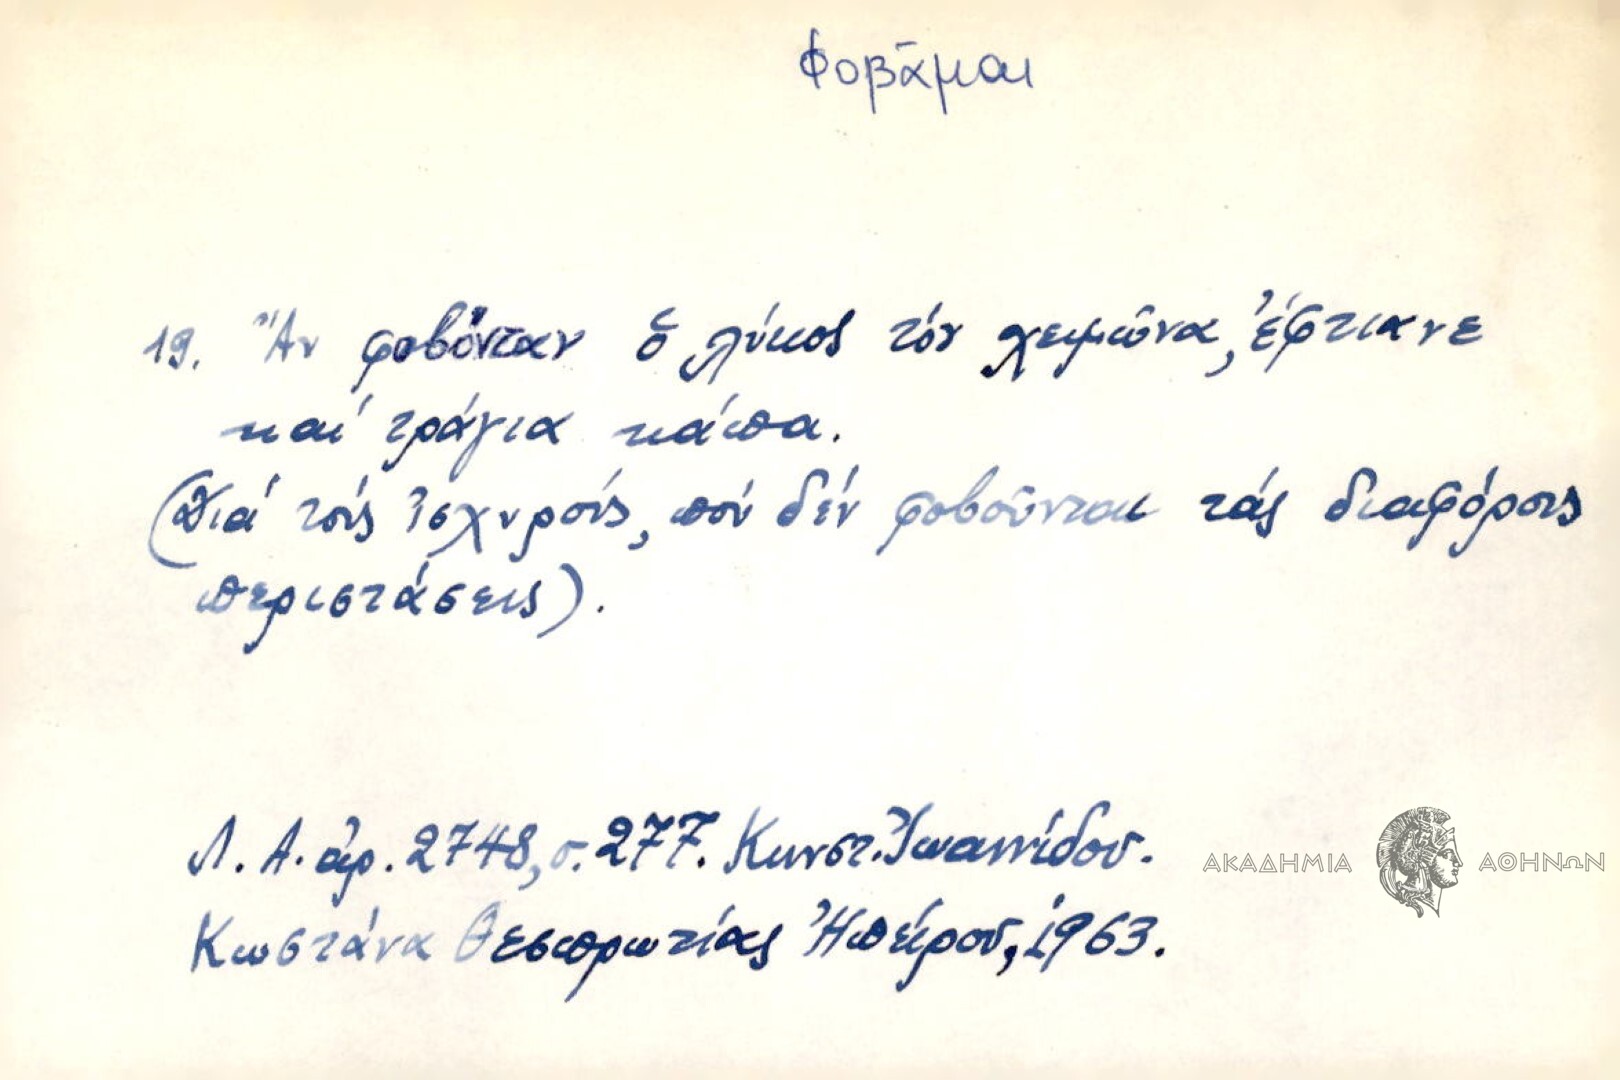 Φοβᾶμαι
19. Ἄν φοβόνταν ὁ λύκος τόν χειμῶνα, ἔφτιανε
καί τράγια κάππα.
(Διά τούς ἰσχυρούς, πού δέν φοβοῦνται τάς διαφόρους
περιστάσεις).
Λ. Α. ἀρ. 2748, σ. 277. Κωνστ. Ἰωαννίδου.
Κωστάνα Θεσπρωτίας Ἠπείρου, 1963.
ΑΚΑΔΗΜΙΑ ΑΘΗΝΩΝ